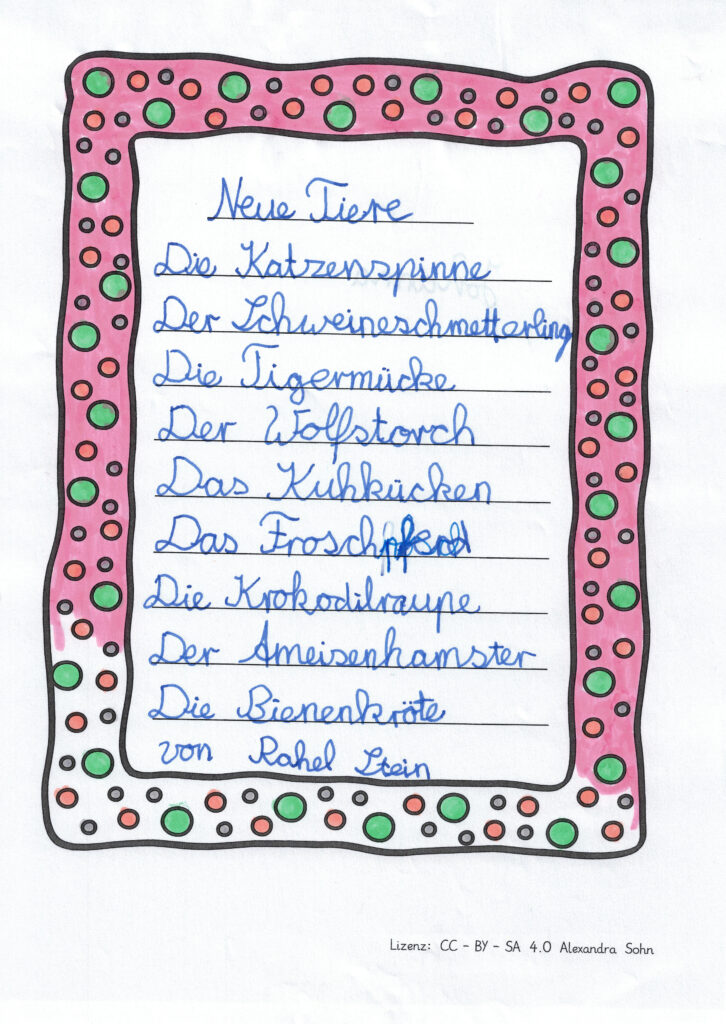 Neue Tiere
Die Katzenspinne
Der Schweineschmetterling
Die Tigermücke
Der Wolfstorch
Das Kuhkücken
Das Froschpferd
Die Krokodilraupe
Der Ameisenhamster
Die Bienenkröte
von Rahel Stein
Lizenz: CC - BY - SA 4.0 Alexandra Sohn